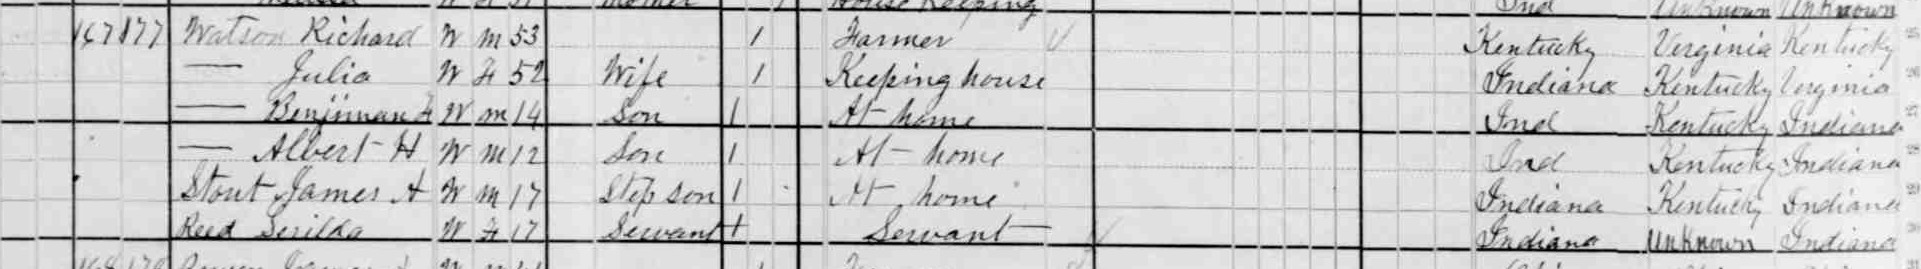 House Keeping Ind Unknown Unknown
167 177 Watson Richard W M 53 / Farmer Kentucky Virginia Kentucky 25
— Julia W F 52 Wife / Keeping house Indiana Kentucky Verginia 26
— Benjiman F W M 14 Son / At home Ind Kentucky Indiana 27
— Albert H W M 12 Son / At home Ind Kentucky Indiana 28
Stout James A W M 17 Step son / At home Indiana Kentucky Indiana 29
Reed Serilda W F 17 Servant / Servant Indiana Unknown Indiana 30